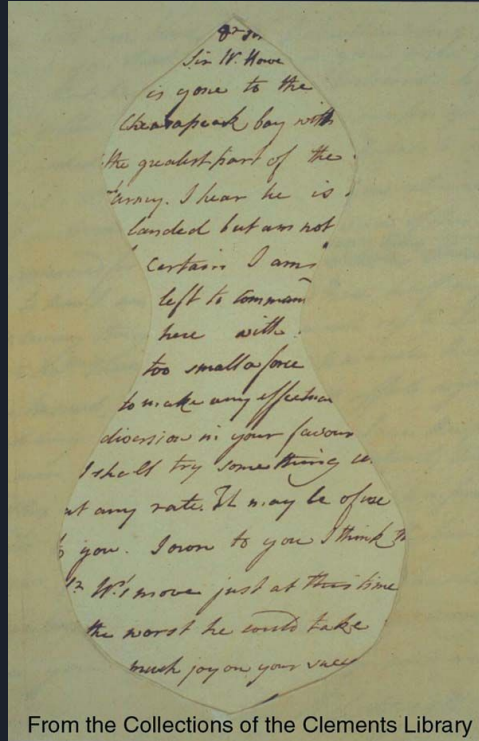 Sir W. Howe
is gone to the
Chesapeak bay with
the greatest part of the
army. I hear he is
landed but am not
certain I am
left to command
here with
too small a force
to make any effectua
diversion in your favour
I shall try something
at any rate. It may be of use
to you. I own to you I think
Sr W's move just at this time
the worst he could take
much joy on your succe
From the Collections of the Clements Library